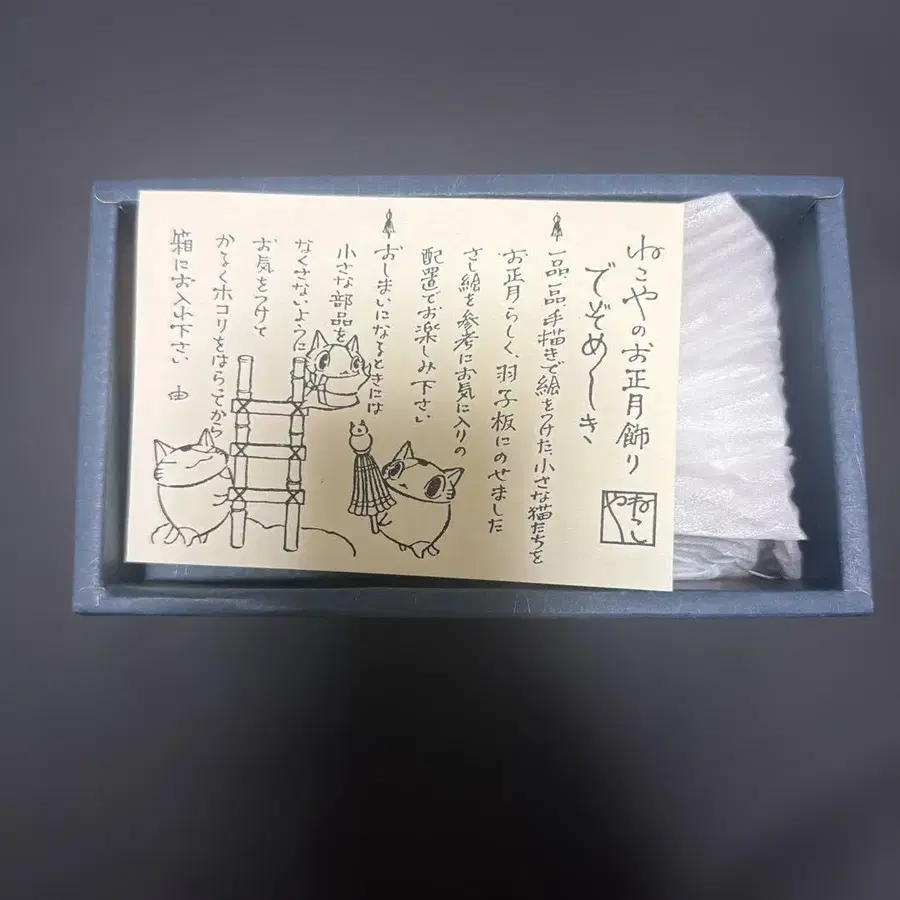 ねこやのお正月飾り
でぞめしき
ねこや
一品、一品、手描きで絵をつけた、小さな猫たちを
お正月らしく、羽子板にのせました
さし絵を参考にお気に入りの
配置でお楽しみ下さい
おしまいになるときには
小さな部品を
なくさないように
お気をつけて
かるくホコリをはらってから
箱にお入れ下さい 由